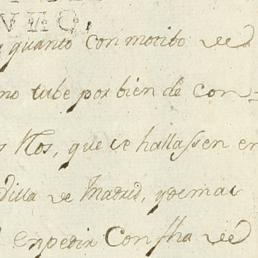 quanto con motibo de
no tube por bien de con=
s Nos, que se hallassen en
Villa de Madrid, y demas
expedir Con fha de